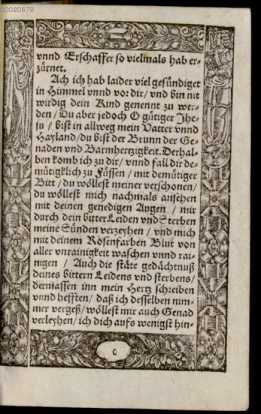 vnnd Erschaffer so vielmals hab er-
zürnet.
Ach ich hab laider viel gesündiget
in Himmel vnnd vor dir / vnd bin nit
wirdig dein Kind genennt zu wer-
den / Du aber jedoch O gütiger Jhe-
su / bist in allweg mein Vatter vnnd
Hayland / du bist der Brunn der Ge-
naden vnd Barmhertzigkeit. Derhal-
ben komb ich zu dir / vnnd fall dir de-
mütigklich zu Füssen / mit demütiger
Bitt / du wöllest meiner verschonen /
du wöllest mich nachmals ansehen
mit deinen genedigen Augen / mir
durch dein bitter Leiden vnd Sterben
meine Sünden verzeyhen / vnd mich
mit deinem Rosenfarben Blut von
aller vnrainigkeit waschen vnnd rai-
nigen / Auch die stäte gedächtnuß
deines bittern Leidens vnd sterbens /
dermassen inn mein Hertz schreiben
vnnd hefften / daß ich desselben nim-
mer vergeß / wöllest mir auch Genad
verleyhen / ich dich auffs wenigst hin-